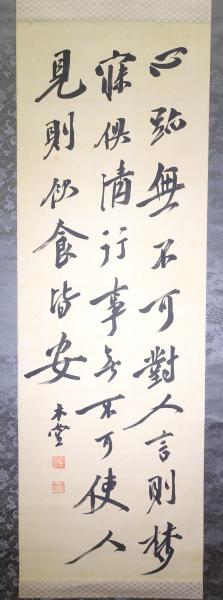 心跡無不可對人言則夢
寐俱清行事無不可使人
見則飲食皆安
木堂